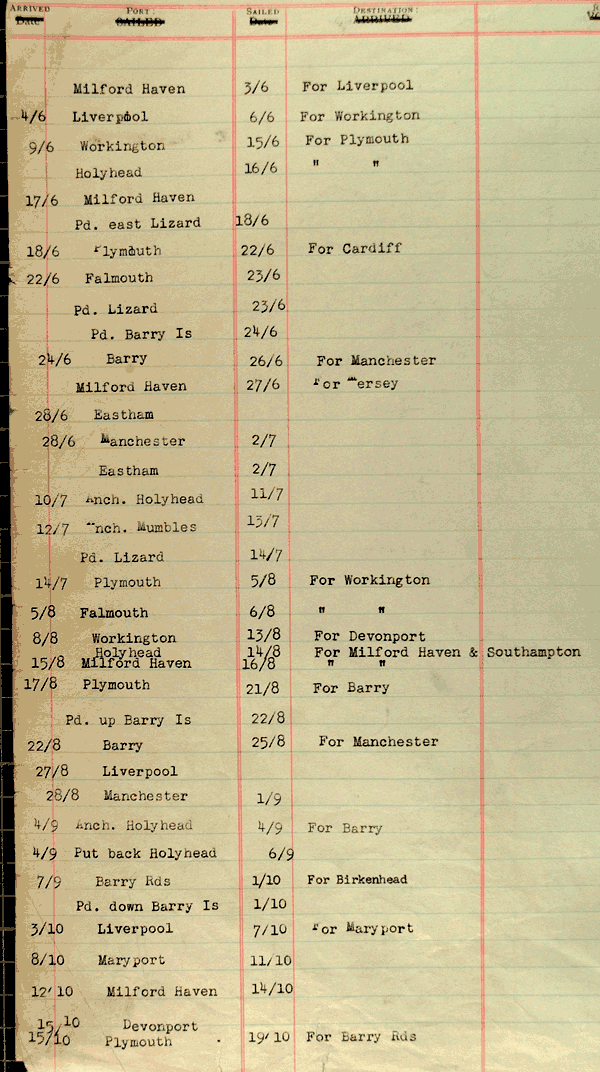 ARRIVED PORT: SAILED DESTINATION:
Date SAILED Date ARRIVED
Milford Haven 3/6 For Liverpool
4/6 Liverpool 6/6 For Workington
9/6 Workington 15/6 For Plymouth
Holyhead 16/6 " "
17/6 Milford Haven
Pd. east Lizard 18/6
18/6 Plymouth 22/6 For Cardiff
22/6 Falmouth 23/6
Pd. Lizard 23/6
Pd. Barry Is 24/6
24/6 Barry 26/6 For Manchester
Milford Haven 27/6 For Mersey
28/6 Eastham
28/6 Manchester 2/7
Eastham 2/7
10/7 Anch. Holyhead 11/7
12/7 Anch. Mumbles 13/7
Pd. Lizard 14/7
14/7 Plymouth 5/8 For Workington
5/8 Falmouth 6/8 " "
8/8 Workington 13/8 For Devonport
Holyhead 14/8 For Milford Haven & Southampton
15/8 Milford Haven 16/8 " "
17/8 Plymouth 21/8 For Barry
Pd. up Barry Is 22/8
22/8 Barry 25/8 For Manchester
27/8 Liverpool
28/8 Manchester 1/9
4/9 Anch. Holyhead 4/9 For Barry
4/9 Put back Holyhead 6/9
7/9 Barry Rds 1/10 For Birkenhead
Pd. down Barry Is 1/10
3/10 Liverpool 7/10 For Maryport
8/10 Maryport 11/10
12/10 Milford Haven 14/10
15/10 Devonport
15/10 Plymouth . 19/10 For Barry Rds